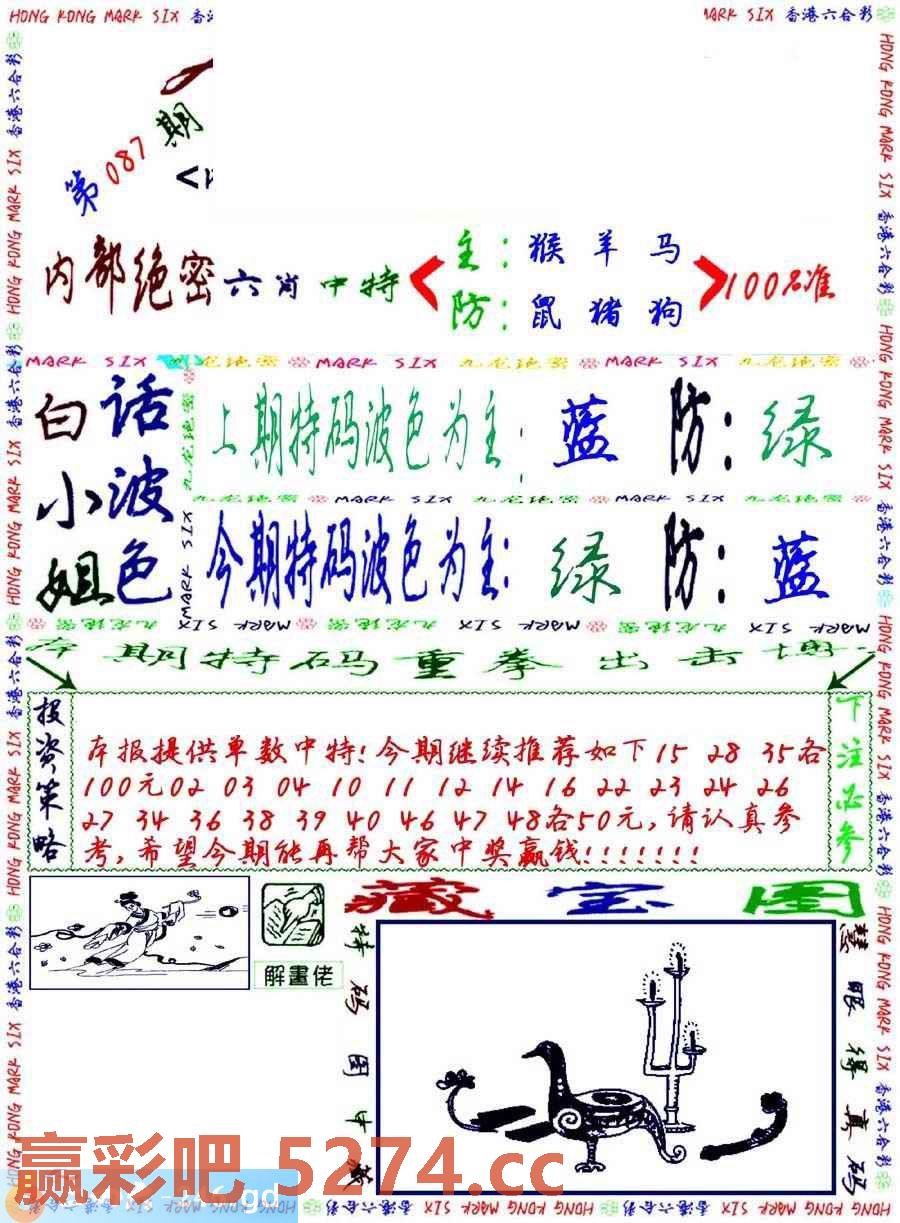 HONG KONG MARK SIX 香港六合彩
第087期
内部绝密六肖中特
主：猴羊马
防：鼠猪狗
100%准
MARK SIX 九龙绝密 MARK SIX 九龙绝密 MARK SIX 九龙绝密
白话小波姐色
上期特码波色为主：蓝 防：绿
九龙绝密 MARK SIX 九龙绝密 MARK SIX 九龙绝密
今期特码波色为主：绿 防：蓝
MARK SIX 九龙绝密 MARK SIX 九龙绝密 MARK SIX 九龙绝密
期特码重拳出击
投资策略
本报提供单数中特!今期继续推荐如下15 28 35各
100元02 03 04 10 11 12 14 16 22 23 24 26
27 34 36 38 39 40 46 47 48各50元,请认真参
考,希望今期能再帮大家中奖赢钱!!!!!!!
下注必参
解畫佬
藏宝图
特码图中藏
慧眼得真码
赢彩吧 5274.cc
HONG KONG MARK SIX 香港六合彩